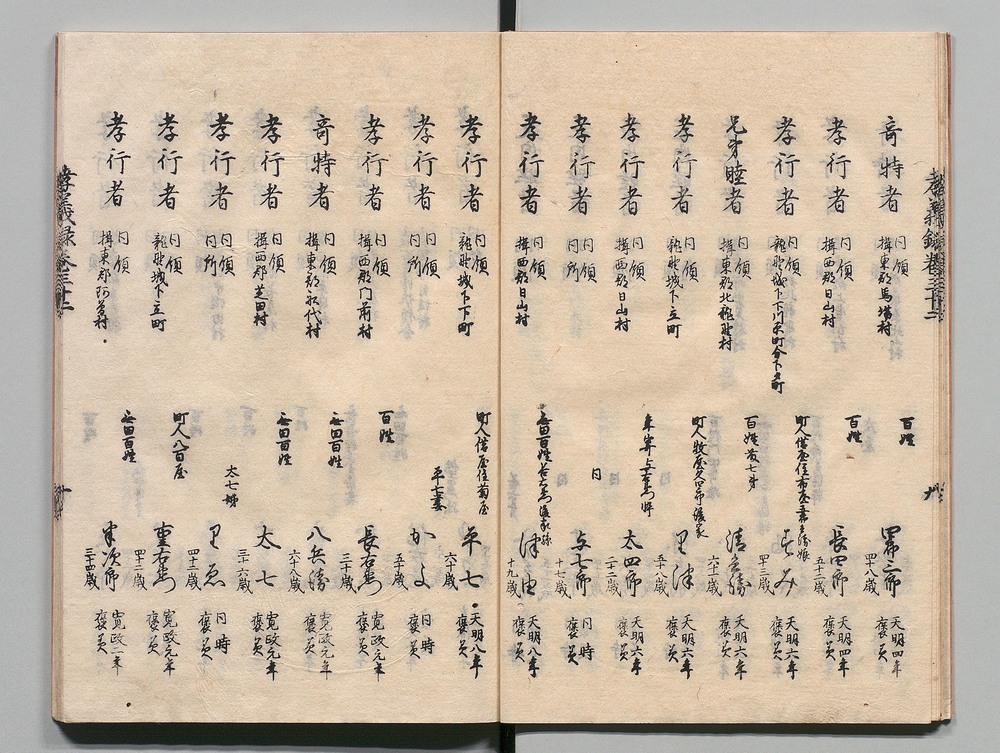 奇特者 同領 揖東郡馬場村 百姓 四郎三郎 四十八歳 天明四年 褒美
孝行者 同領 揖西郡日山村 百姓 長四郎 五十二歳 天明四年 褒美
孝行者 同領 龍野城下下川原町分下夕町 町人借屋住布屋 すみ 四十三歳 天明六年 褒美
兄弟睦者 同領 揖東郡北龍野村 百姓 清兵衛 六十二歳 天明六年 褒美
孝行者 同領 龍野城下上立町 町人 りつ 五十八歳 天明六年 褒美
孝行者 同領 揖西郡日山村 太四郎 二十二歳 天明六年 褒美
孝行者 同領 同所 同 与七郎 十七歳 同時 褒美
孝行者 同領 揖西郡日山村 無田百姓 十九歳 天明八年 褒美
孝行者 同領 龍野城下下町 町人借屋住菊屋 平七 六十歳 天明八年 褒美
孝行者 同領 同所 平七妻 かよ 五十歳 同時 褒美
孝行者 同領 揖西郡門前村 百姓 長右衛門 三十歳 寛政元年 褒美
奇特者 同領 揖東郡松代村 無田百姓 八兵衛 六十八歳 寛政元年 褒美
孝行者 同領 揖西郡芝田村 無田百姓 太七 三十六歳 寛政元年 褒美
孝行者 同領 同所 太七姉 りゑ 四十二歳 同時 褒美
孝行者 同領 龍野城下立町 町人八百屋 重右衛門 四十二歳 寛政元年 褒美
孝行者 同領 揖東郡阿曽村 無田百姓 米次郎 三十四歳 寛政二年 褒美
孝義録 巻三十二